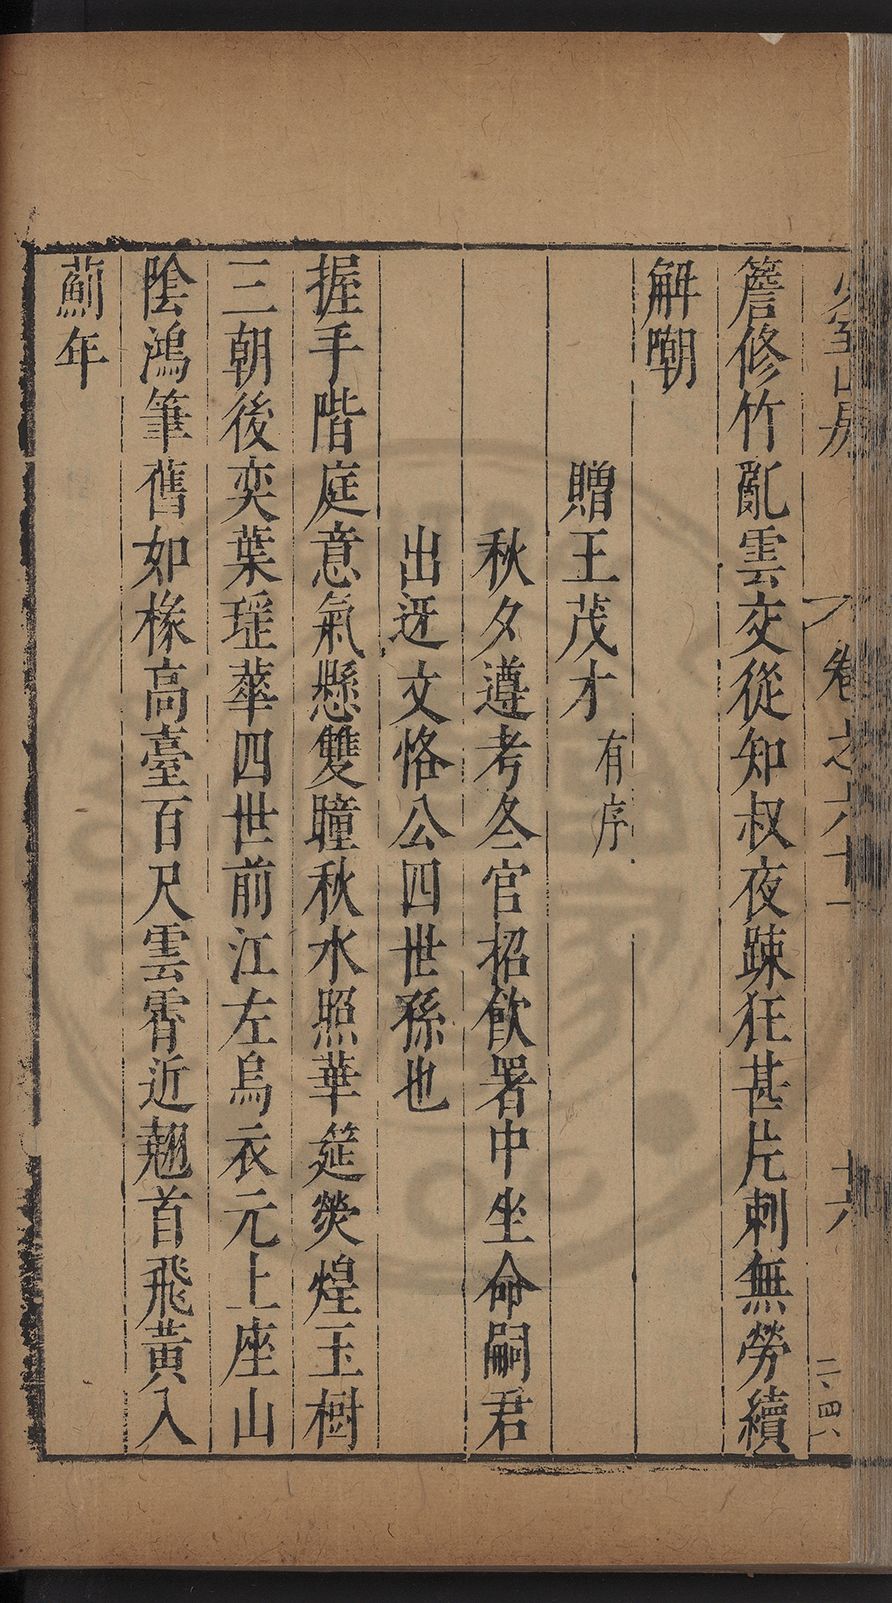 少室山房 卷之六十一 十六 二、四八
簷修竹亂雲交從知叔夜踈狂甚片刺無勞續
解嘲
贈王茂才有序
秋夕遵考冬官招飲署中坐命嗣君
出迓文恪公四世孫也
握手階庭意氣懸雙瞳秋水照華筵熒煌玉樹
三朝後奕葉瑶華四世前江左烏衣元上座山
陰鴻筆舊如椽高臺百尺雲霄近翹首飛黃入
薊年